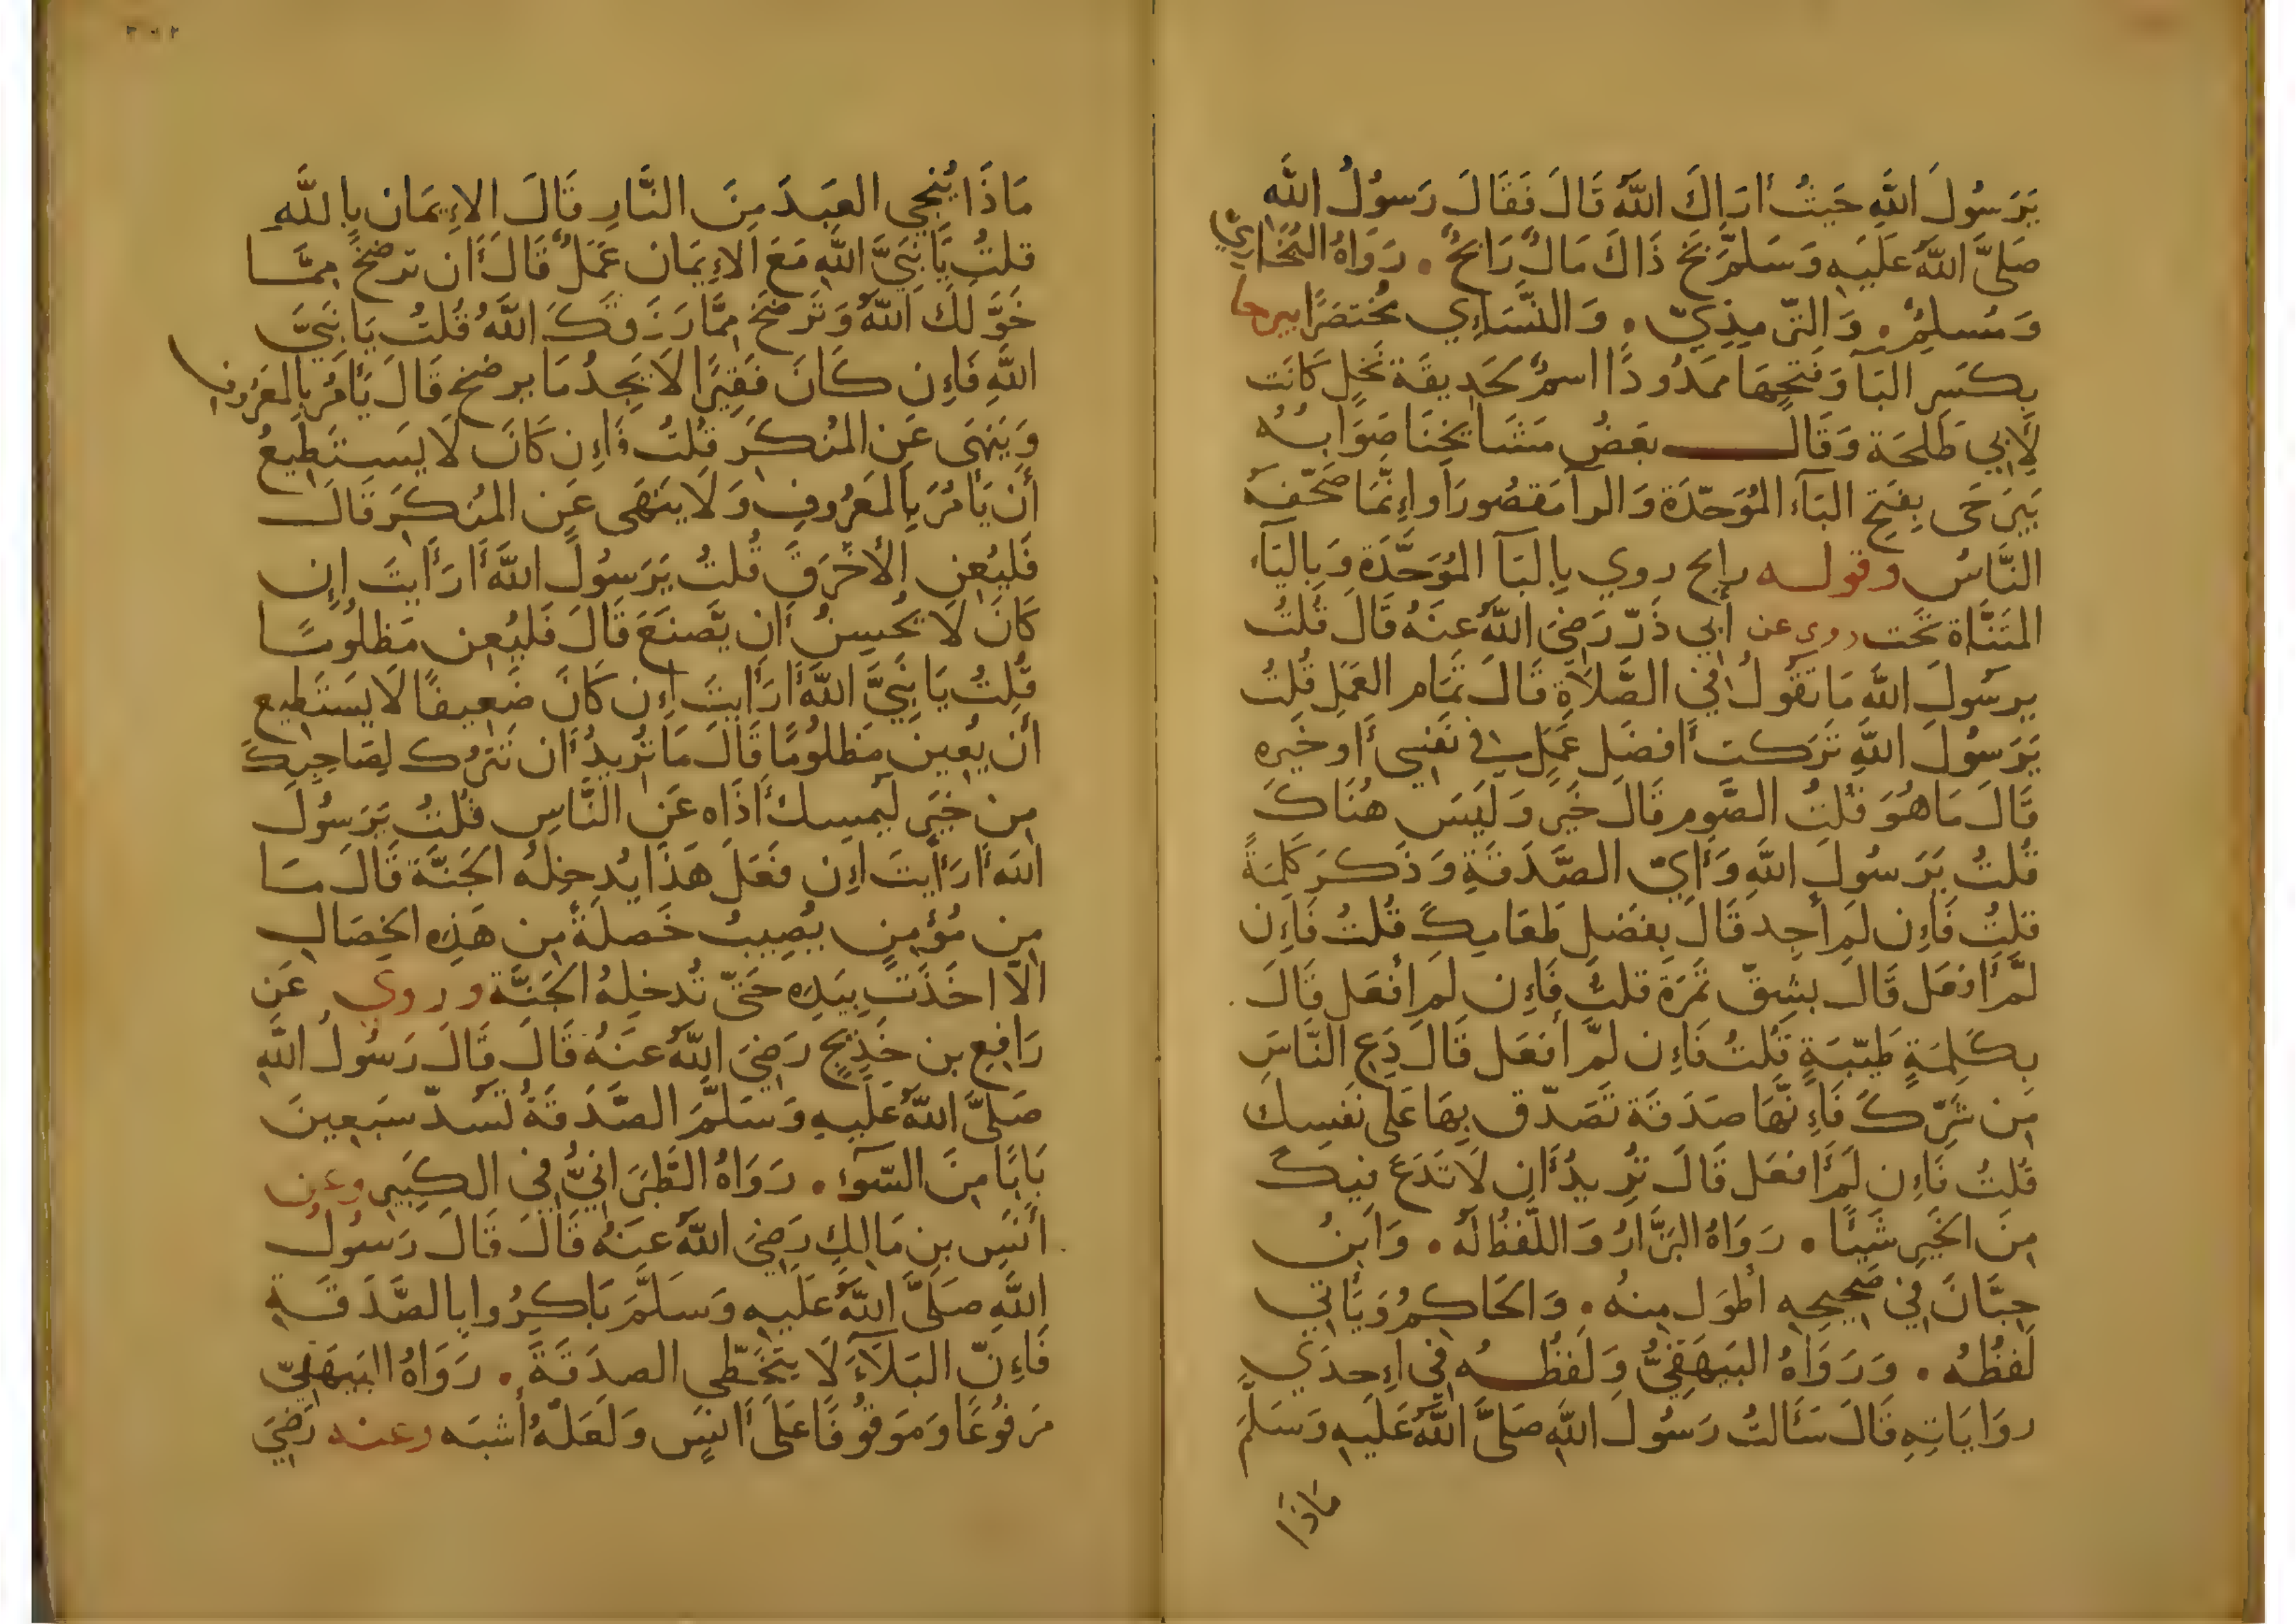 يَرَسُولَ اللَّهِ حَيثُ أَرَاكَ اللَّهُ قَالَ فَقَالَ رَسُولُ اللَّهِ
صَلَّى اللَّهُ عَلَيهِ وَسَلَّمَ بَخ ذَاكَ مَالٌ رَابحٌ . رَوَاهُ البُخَارِيّ
وَمُسلِمٌ . وَالتِّرمِذِيّ . وَالنَّسَاءِي مُختَصَرًا بيرحا
بِكَسرِ البَآ وَفَتحِهَا مَمدُودًا اسمٌ لحَدِيقَة نَخلٍ كَانَت
لِأَبِي طَلحَة وَقَالَ بَعضُ مَشَايخِنَا صَوَابُهُ
بَيرَحَى بِفَتحِ البَآءِ المُوَحّدَة وَالرآ مَقصُورًا وَإِنَّمَا صَحّفَهُ
النَّاسُ وقوله رابح روي بِالبَآ المُوَحَّدَة وَبِاليَآءِ
المُثَنَّاة تَحَت روي عن أَبي ذَرّ رَضِيَ اللَّهُ عَنهُ قَالَ قُلتُ
يرسُولَ اللَّه مَا تَقُولُ فِي الصَّلَاةِ قَالَ تَمَام العَمَلِ قُلتُ
يَرَسُولَ اللَّهِ تَرَكت أَفضَل عَمَلٍ في نَفسِي أَو خَيره
قَالَ مَا هُوَ قُلتُ الصَّوم قَالَ خَير وَلَيسَ هُنَاكَ
قُلتُ يَرَسُولَ اللَّهِ وَأَيّ الصَّدَقَةِ وَذَكَرَ كَلِمَةً
قُلتُ فَإِن لَم أَجِد قَالَ بِفَضلِ طَعَامِكَ قُلتُ فَإِن
لَّم أَفعَل قَالَ بشِقّ تَمَرَة قلتُ فَإِن لَم أَفعَل قَالَ
بِكَلِمَةٍ طَيّبَةٍ قُلتُ فَإِن لَّم أَفعَل قَالَ دَعِ النَّاسَ
مِن شَرِّكَ فَإِنَّهَا صَدَقَة تَصَدّق بِهَا عَلَى نَفسِكَ
قُلتُ فَإِن لَم أَفعَل قَالَ تُرِيدُ أَن لَا تَدَعَ فِيكَ
مِنَ الخَيرِ شَيئًا . رَوَاهُ البَزَّارُ وَاللَّفظُ لَهُ . وَابنُ
حِبَّانَ فِي صَحِيحِهِ أَطوَل مِنهُ . وَالحَاكِمُ وَيَأتِي
لَفظُهُ . وَرَوَاهُ البَيهَقِيُّ وَلَفظُهُ فِي إِحدَي
روَايَاتِهِ قَالَ سَأَلتُ رَسُولَ اللَّهِ صَلَّى اللَّهُ عَلَيهِ وَسَلَّمَ
مَاذَا
٢٠٢
مَاذَا يُنجِي العَبدَ مِنَ النَّارِ قَالَ الإِيمَان بِاللَّهِ
قلتُ يَا نَبِيَّ اللَّهِ مَعَ الإِيمَان عَمَلٌ قَالَ أَن ترضخَ مِمَّا
خَوَّلَكَ اللَّهُ وَتَرضَخَ مِمَّا رَزَقَكَ اللَّهُ قُلتُ يَا نَبِيَّ
اللَّهِ فَإِن كَانَ فَقِيرًا لَا يَجِدُ مَا يرضخ قَالَ يَأمُر بِالمَعرُوفِ
وَيَنهَى عَنِ المُنكَرَ قُلتُ فَإِن كَانَ لَا يَستَطِيعُ
أَن يَأمُرَ بِالمَعرُوفِ وَلَا يَنهَى عَنِ المُنكَرَ قَالَ
فَليُعِنِ الأَخرَقَ قُلتُ يَرَسُولَ اللَّهِ أَرَأَيتَ إِن
كَانَ لَا يُحسِنُ أَن يَّصنَعَ قَالَ فَليُعِن مَظلُومًا
قُلتُ يَا نَبِيَّ اللَّهِ أَرَأَيتَ إِن كَانَ ضَعِيفًا لَا يَستَطِيع
أَن يُعِين مَظلُومًا قَالَ مَا تُرِيدُ أَن تَترُك لِصَاحِبِكَ
مِن خَيرٍ لِيمسِك أَذَاه عَنِ النَّاسِ قُلتُ يَرَسُولَ
اللَّهِ أَرَأَيتَ إِن فَعَلَ هَذَا يُدخِلُهُ الجَنَّة قَالَ مَا
مِن مُؤمِنٍ يُصِيبُ خَصلَةً مِن هَذِهِ الخِصَالِ
الّا اخَذَت بِيَدِهِ حَتّى تُدخلِهُ الجَنَّة وروي عَن
رَافِع بن خَدِيجٍ رَضِيَ اللَّهُ عَنهُ قَالَ قَالَ رَسُولُ اللَّهِ
صَلَّى اللَّهُ عَلَيهِ وَسَلَّمَ الصَّدَقَةُ تَسُدّ سَبعِينَ
بَابًا مِنَ السّوءِ . رَوَاهُ الطَّبَرَانِيُّ فِي الكَبِيرِ وعن
أَنَسِ بنِ مَالِكٍ رَضِيَ اللَّهُ عَنهُ قَالَ قَالَ رَسُولُ
اللَّهِ صَلَّى اللَّهُ عَلَيهِ وَسَلَّمَ بَاكِرُوا بِالصَّدَقَةِ
فَإِنّ البَلَآءَ لَا يَتَخَطّي الصدَقَةَ . رَوَاهُ البَيهَقِيّ
مَرفُوعًا وَمَوقُوفًا عَلَى أَنَسٍ وَلَعَلّهُ أَشبَه وعنه رَضِيَ